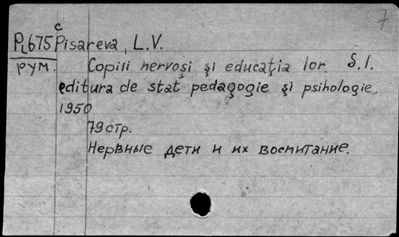 7
c
P675 Pisareva, L.V.
рум. Copiii nervoși și educația lor. S.l.
editura de stat pedagogie și psihologie,
1950
79 стр.
Нервные дети и их воспитание.